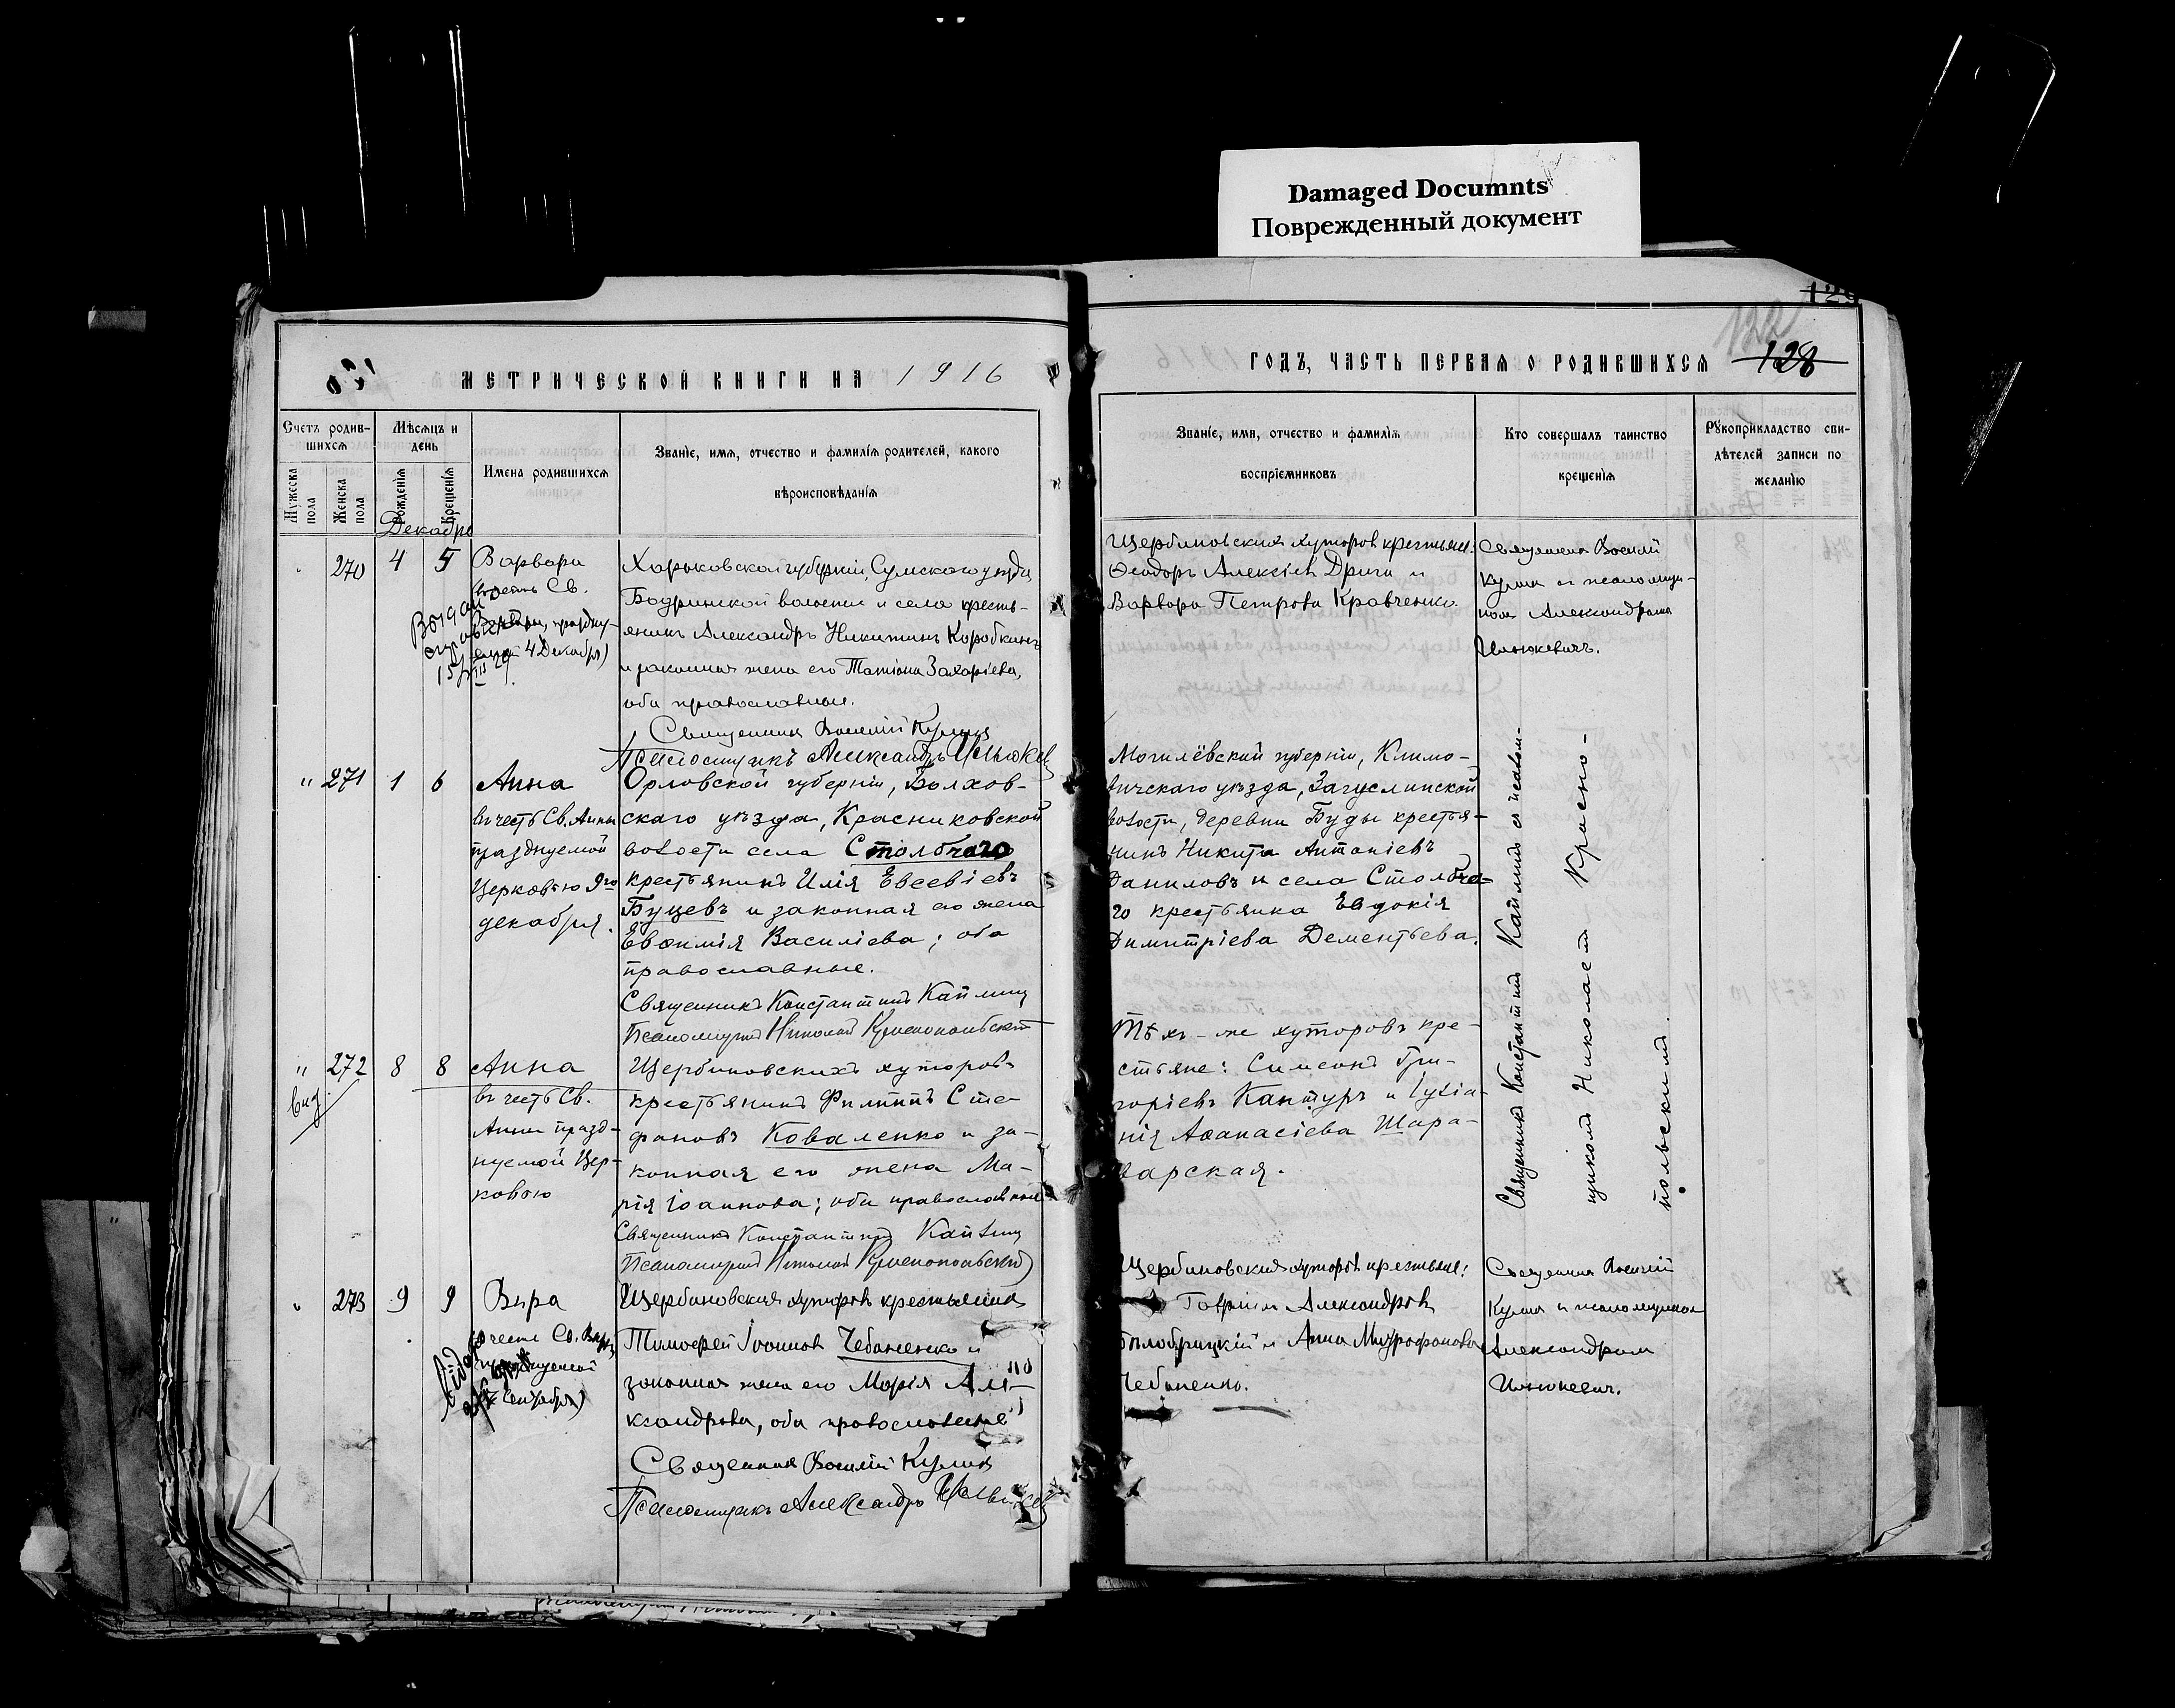 Damaged Documnts
Поврежденный документ
129
МЕТРИЧЕСКОЙ КНИГИ НА 1916
ГОДЪ, ЧАСТЬ ПЕРВАЯ О РОДИВШИХСЯ
132
128
Счетъ родив-
шихся
Мужеска пола
Женска пола
Мѣсяцъ и
день
Рожденія
Крещенія
Имена родившихся
Званіе, имя, отчество и фамилія родителей, какого
вѣроисповѣданія
Званіе, имя, отчество и фамилія
воспріемниковъ
Кто совершалъ таинство
крещенія
Рукоприкладство сви-
дѣтелей записи по
желанію
Декабрь
270 4 5
Варвара
честь Св.
празdну-
4 Декабря)
Харьковской губерніи, Сумскаго уѣзда,
волости и села кресть-
янинъ Александръ Никитинъ Коробкинъ
и законная жена его Татіана Захаріева,
оба православные.
Священникъ Василій Кулик
Псаломщикъ Александръ
Щербиновскихъ хуторовъ крестьяне:
Ѳеодоръ Алексіевъ Дрига и
Варвара Петрова Кравченко.
Священникъ Василій
Кулик съ псаломщи-
ком Александромъ
" 271 1 6
Анна
въ честь Св. Анны
празднуемой
Церковью 9го
декабря.
Орловской губерніи, Болхов-
скаго уѣзда, Красниковской
волости села Столбчаго
крестьянинъ Илія Евсевіевъ
Буцевъ и законная его жена
Евѳимія Василіева; оба
православные.
Священникъ Константинъ
Псаломщикъ Николай Краснопольскій
Могилёвской губерніи, Климо-
вичскаго уѣзда,
волости, деревни Буды крестья-
нинъ Никита Антоніевъ
Даниловъ и села Столбча-
го крестьянка Евдокія
Димитріева Дементьева.
Священникъ Константинъ съ псалом-
щикомъ Николаемъ Красно-
польскимъ.
" 272 8 8
Анна
въ честь Св.
Анны празд-
нуемой Цер-
ковью
Щербиновскихъ хуторовъ
крестьянинъ Филиппъ Сте-
фановъ Коваленко и за-
конная его жена Ма-
рія Іоаннова; оба православные
Священникъ Константинъ
Псаломщикъ Николай Краснопольскій
Тѣхъ-же хуторовъ кре-
стьяне: Симеонъ Гри-
горіевъ Кантуръ и Іуліа-
нія Аѳанасіева Шара-
варская.
273 9 9
Вѣра
честь Св. Вѣры
Сентября)
Щербиновскихъ хуторовъ крестьянинъ
Тимоѳей Іоанновъ Чебаненко и
законная жена его Марія Але-
ксандрова, оба православные
Священникъ Василій Кулик
Псаломщикъ Александръ
Щербиновскихъ хуторовъ крестьяне:
Гавріилъ Александровъ
Бѣлобрицкій и Анна Митрофанова
Чебаненко.
Священникъ Василій
Кулик и псаломщикъ
Александромъ